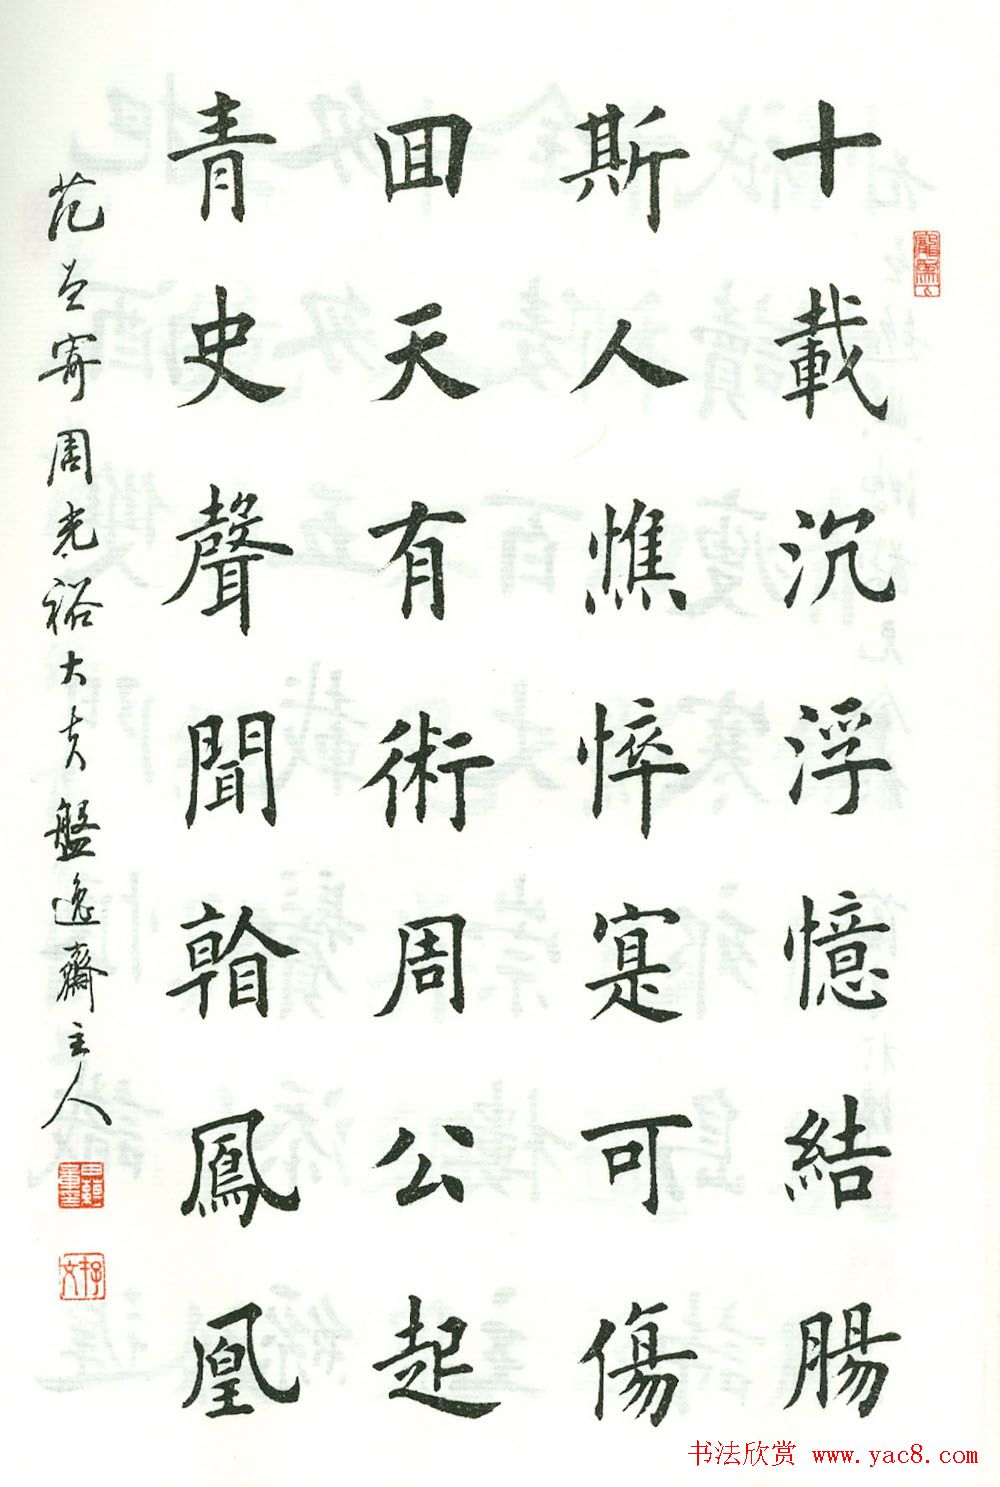 十載沉浮憶結腸
斯人憔悴寔可傷
回天有術周公起
青史聲聞翰鳳凰
范曾寄周光裕大夫盤逸齋主人
书法欣赏 www.yac8.com